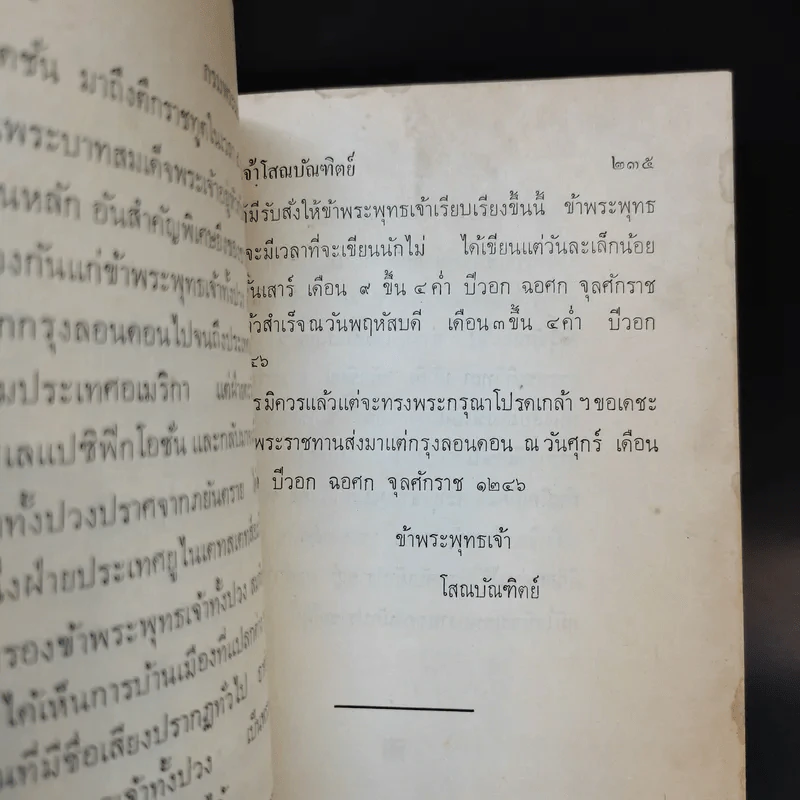 ดชั้น มาถึงตึกราชทูตในเวลา
พระบาทสมเด็จพระเจ้าอยู่หัว
นหลัก อันสำคัญพิเศษยิ่ง
องกันแก่ข้าพระพุทธเจ้าทั้งปวง
กกรุงลอนดอนไปจนถึงประเทศ
มประเทศอเมริกา แต่ฝ่าย
เลแปซิฟิกโอชั่น และกลับมา
ทั้งปวงปราศจากภยันตราย
ฝ่ายประเทศยูไนเตทสเตท
รองข้าพระพุทธเจ้าทั้งปวง
ได้เห็นการบ้านเมืองที่แปลก
นที่มีชื่อเสียงปรากฏทั่วไป
ะเจ้าทั้งปวง เป็น
ได้
จ้าโสณบัณฑิตย์ ๒๓๕
มีรับสั่งให้ข้าพระพุทธเจ้าเรียบเรียงขึ้นนี้ ข้าพระพุทธ
จะมีเวลาที่จะเขียนนักไม่ ได้เขียนแต่วันละเล็กน้อย
นเสาร์ เดือน ๙ ขึ้น ๔ ค่ำ ปีวอก ฉอศก จุลศักราช
้วสำเร็จ ณ วันพฤหัสบดี เดือน ๓ ขึ้น ๔ ค่ำ ปีวอก
๔๖
รมิควรแล้วแต่จะทรงพระกรุณาโปรดเกล้า ฯ ขอเดชะ
พระราชทานส่งมาแต่กรุงลอนดอน ณ วันศุกร์ เดือน
ปีวอก ฉอศก จุลศักราช ๑๒๔๖
ข้าพระพุทธเจ้า
โสณบัณฑิตย์